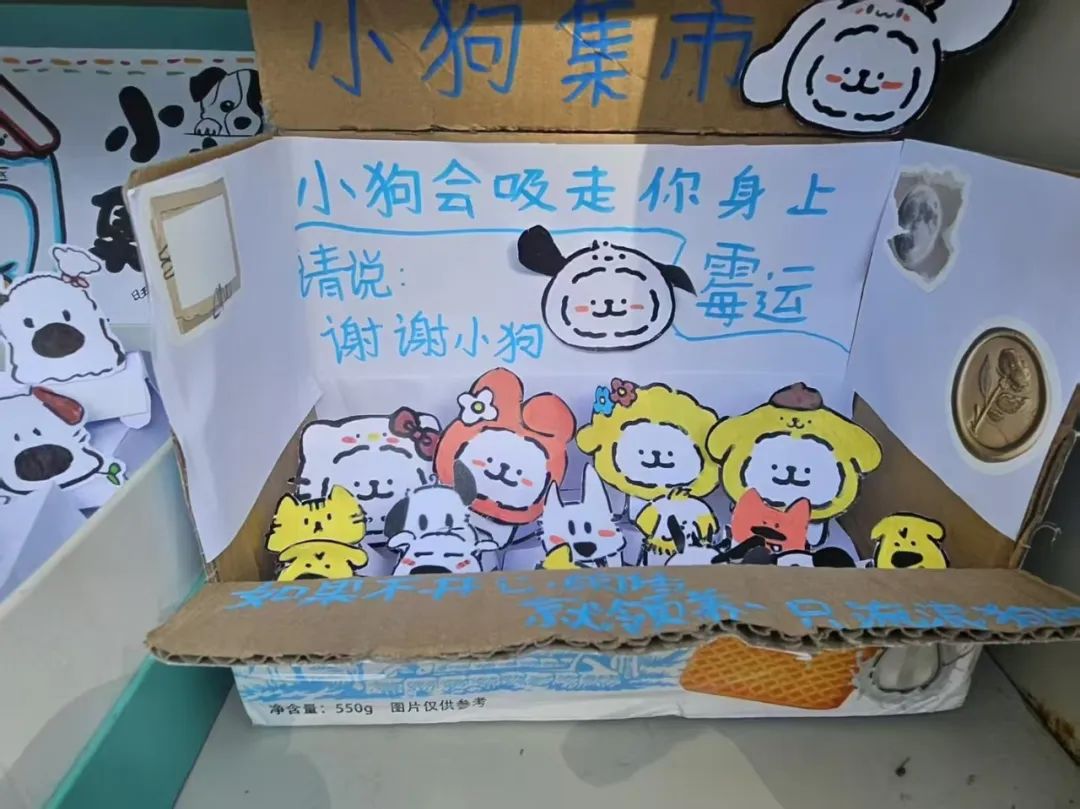 小狗集市
小狗会吸走你身上
霉运
请说：
谢谢小狗
如果不开心的话
就领养一只流浪狗
净含量：550g 图片仅供参考
小